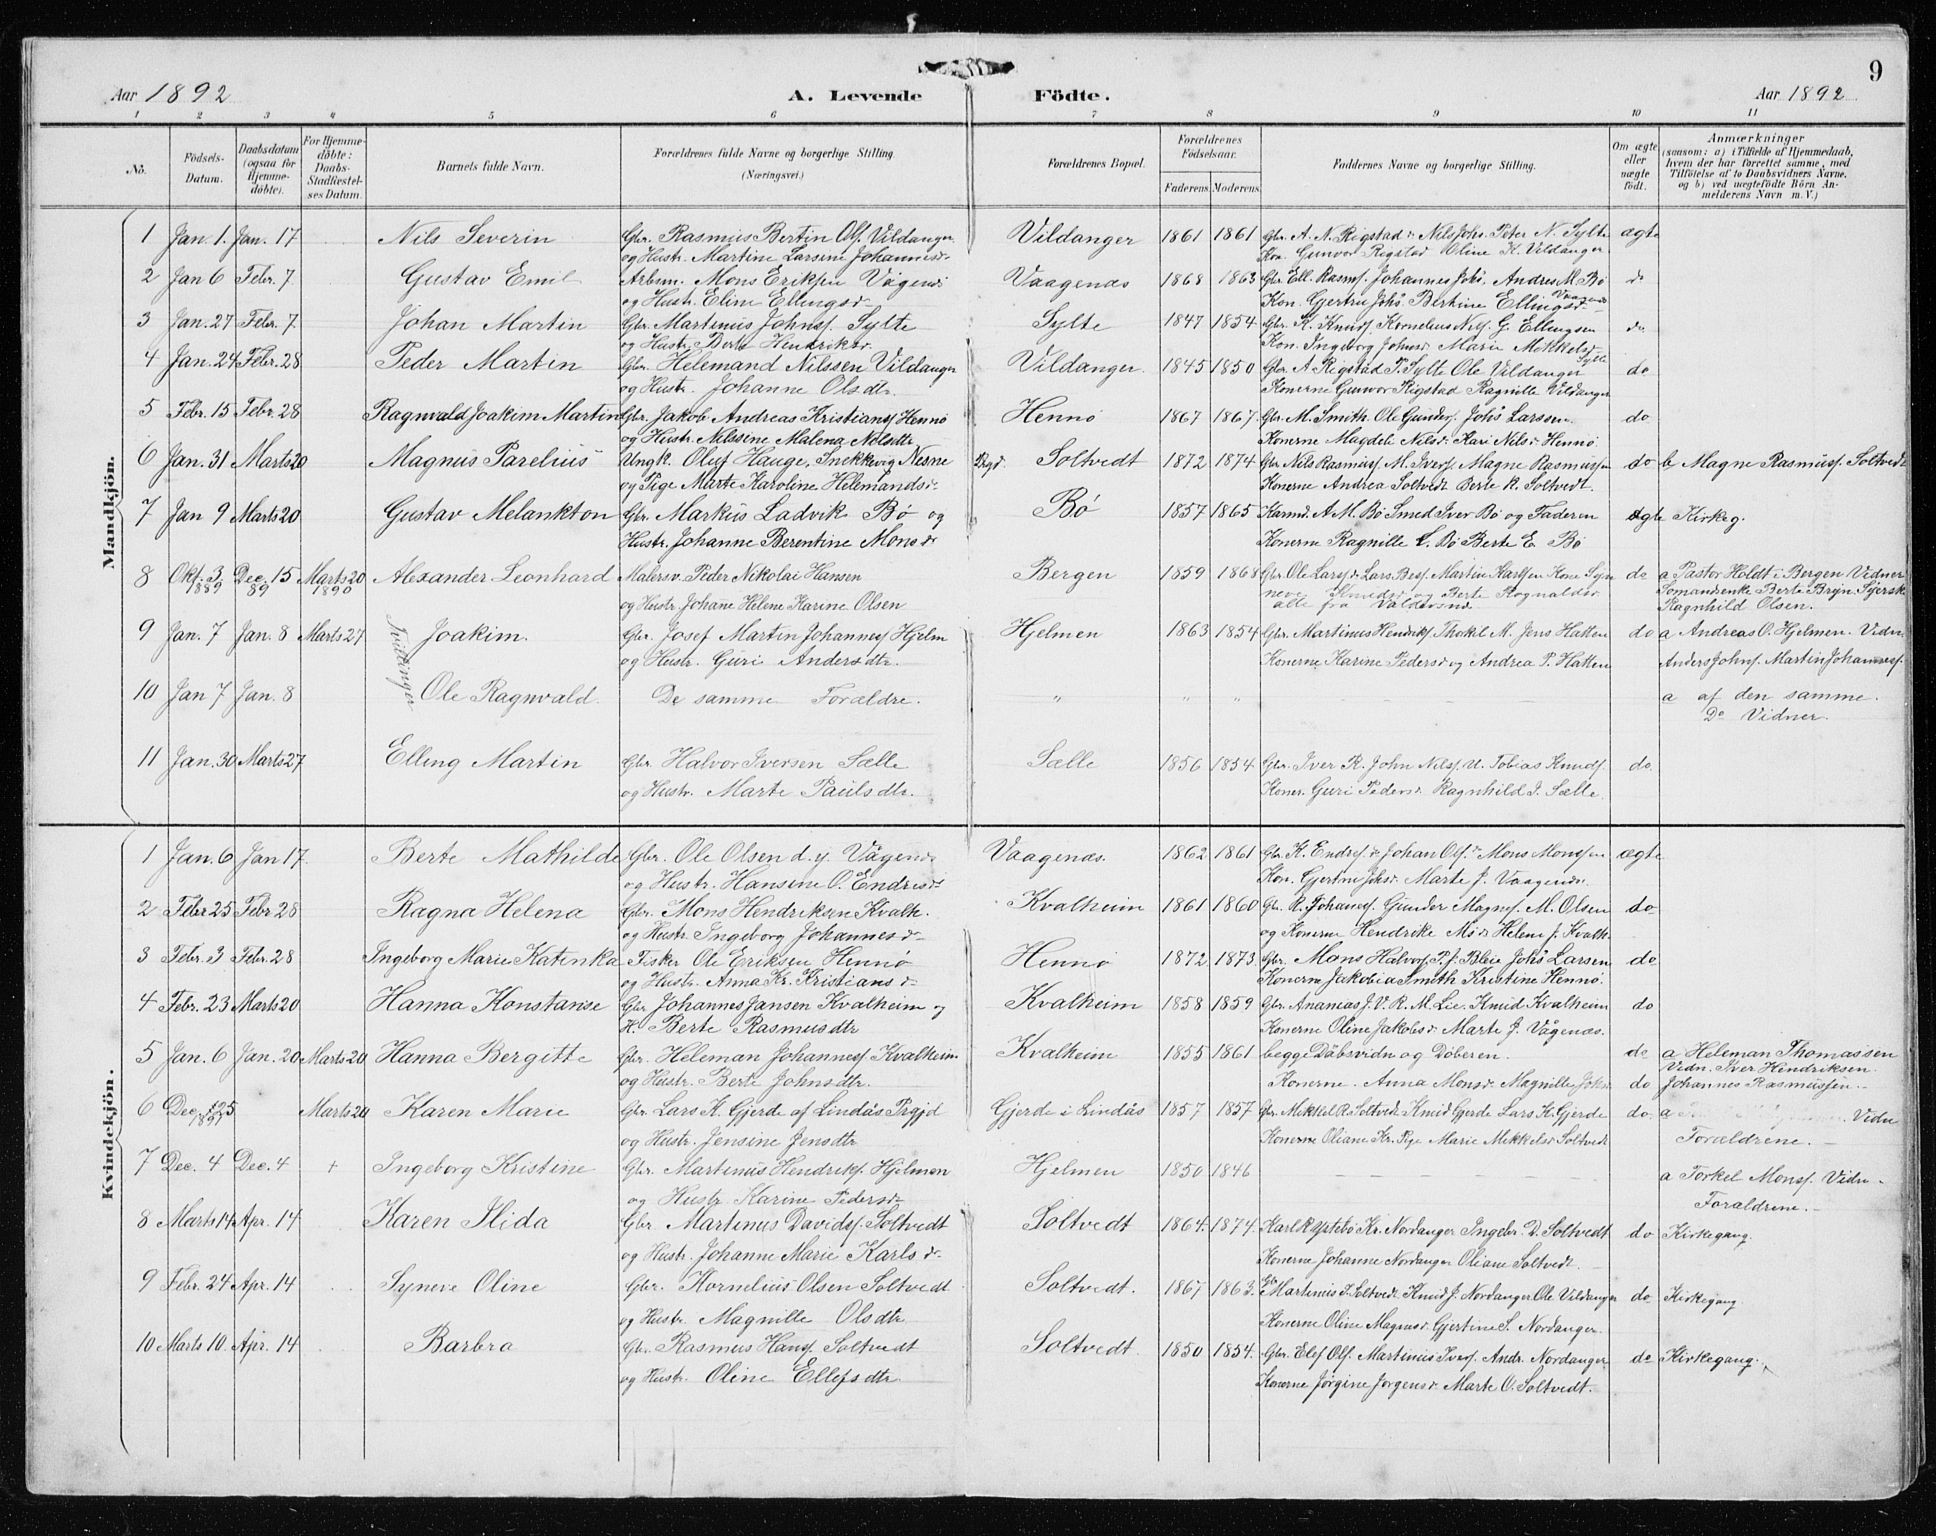 9
Aar 1892 A. Levende Födte. Aar 1892
1 2 3 4 5 6 7 8 9 10 11
No. Födsels-Datum. Daabsdatum (ogsaa for Hjemme-döbte). For Hjemme-döbte: Daabs-Stadfæstel-ses Datum. Barnets fulde Navn. Forældrenes fulde Navne og borgerlige Stilling. (Næringsvei.) Forældrenes Bopæl. Forældrenes Födselsaar. Faderens Moderens Faddernes Navne og borgerlige Stilling. Om ægte eller uægte födt. Anmærkninger (saasom: a) i Tilfælde af Hjemmedaab, hvem der har forrettet samme, med Tilföielse af to Daabsvidners Navne, og b) ved uægtefödte Börn An-melderens Navn m. V.)
Mandkjön.
1 Jan. 1. Jan. 17 Nils Severin Gbr. Rasmus Bertin Ols. Vildanger Vildanger 1861 1861 Gbr. A. N. Rigstad Nils Johs. Peter N. Sylte ægte
og Hustr. Martine Larsine Johannesdr Kon. Gunvor Rigstad Oline K. Vildanger
2 Jan 6 Febr. 7 Gustav Emil Arbm. Mons Eriksen Vågenes Vaagenæs 1868 1863 Gbr. Ell. Rasms. Johannes Johs. Andreas M. Bø do
og Hustr. Eline Ellingsdr Kon. Gjertru Johs. Berthine Ellingsdr Vaagenes
3 Jan. 27 Febr. 7 Johan Martin Gbr. Martinus Johns. Sylte Sylte 1847 1854 Gbr. K. Knuds. Kornelius Nils. G. Ellingsen do
og Hustr. Berte Hendriksdr Kon. Ingeborg Johnsdr Marie Mikkelsdr Sylte
4 Jan. 24 Febr. 28 Peder Martin Gbr. Helemand Nilssen Vildanger Vildanger. 1845 1850 Gbr. A Rigstad P. Sylte Ole Vildanger do
og Hustr. Johanne Olsdtr. Konerne Gunvor Rigstad Ragnille Vildanger
5 Febr. 15 Febr. 28 Ragnvald Joakim Martin Gbr. Jakob Andreas Kristians. Hennø Hennö 1867 1867 Gbr. M. Smith. Ole Gunders. Johs Larssen do
og Hustr. Nilssine Malena Nilsdtr Konerne Magdeli Nilsdr Kari Nilsdr Hennö
6 Jan. 31 Marts 20 Magnus Parelius Ungk. Oluf Hauge, Snekkevig Nesne Prgd. Soltvedt 1872 1874 Gbr. Nils Rasmuss. M. Ivers. Magne Rasmussen do b Magne Rasmuss. Soltvedt
og Pige Marte Karoline Helemandsdr Konerne Andrea Soltvedt Berte R. Soltvedt.
7 Jan 9 Marts 20 Gustav Melankton Gbr. Markus Ladvik Bø og Bø 1857 1865 Karmd. A M. Bø Smed Iver Bø og Faderen ægte Kirkeg.
Hustr. Johanne Berentine Monsdr Konerne Ragnille L. Bø Berte E. Bø
8 Okt. 3 1889 Dec. 15 89 Marts 20 1890 Alexander Leonhard Malersv. Peder Nikolai Hansen Bergen 1859 1868 Gbr. Ole Larss. Lars Bess. Martin Karlsen Kone Syn do a Pastor Holdt i Bergen Vidner
og Hustr Johane Helene Karine Olsen neve Knudsdr og Berte Rognaldsdr alle fra Valdersnæs Somandenke Berte Bryn. Syersk Ragnhild Olsen.
Tvillinger
9 Jan. 7 Jan. 8 Marts 27 Joakim. Gbr. Josef Martin Johannes. Hjelm Hjelmen 1863 1854 Gbr. Martinus Hendriks. Thokil M. Jens Hatten do a Andreas O. Hjelmen. Vidn.
og Hustr. Guri Andersdtr. Konerne Karine Pedersdr og Andrea P. Hatten Anders Johns. Martin Johanness.
10 Jan 7 Jan. 8 Ole Ragnvald. De samme Forældre. " " " a af den samme.
Do Vidner.
11 Jan. 30 Marts 27 Elling Martin Gbr. Halvor Iversen Sælle Sælle 1856 1854 Gbr. Iver R. John Nils. U. Tobias Knuds. do.
og Hustr. Marte Paulsdtr. Koner. Guri Pedersdr Ragnhild I. Sælle
Kvindekjön.
1 Jan. 6 Jan 17 Berte Mathilde Gbr. Ole Olsen d. y. Vågenes Vaagenæs. 1862 1861 Gbr. K. Endres. Johan Ols. Mons Monssen ægte
og Hustr. Hansine O. Endresdr Kon. Gjertru Johsdr Marte J. Vaagenæs.
2 Febr 25 Febr 28 Ragna Helena Gbr. Mons Hendriksen Kvalh. Kvalheim 1861 1860 Gbr. R. Johanes. Gunder Magns. M. Olsen do
og Hustr. Ingeborg Johannesdr og Konerne Hendrike Mdr Helene J. Kvalh.
3 Febr. 3 Febr. 28 Ingeborg Marie Katinka Fisker Ole Eriksen Hennö Hennö 1872 1873 Gbr. Mons Halvors. P. J. Bleie Johs Larsen do
og Hustr. Anna Kr. Kristiansdr Konerne Jakobia Smith Kristine Hennö.
4 Febr. 23 Marts 20 Hanna Konstanse Gbr Johannes Jansen Kvalheim og Kvalheim 1858 1859 Gbr. Ananias J. V. R. M. Lie. Knud Kvalheim do
H. Berte Rasmusdtr Konerne Oline Jakobsdr Marte J. Vågenæs.
5 Jan. 6 Jan. 20 Marts 20 Hanna Bergitte Gbr. Heleman Johannes. Kvalheim Kvalheim 1855 1861 begge Däbsvidn og Döberen. do a Heleman Thomassen Vidn. Iver Hendriksen.
og Hustr. Berte Johnsdtr. Konerne Anna Monsdr Magnille Johs. do Johannes Rasmussen.
6 Dec. 25 1891 Marts 20 Karen Marie Gbr. Lars K. Gjerde af Lindås Prgjd Gjerde i Lindås 1857 1857 Gbr. Mikkel R. Soltvedt Knud Gjerde Lars K. Gjerde do a Vidn
og Hustr. Jensine Jensdtr Konerne Oliane Kr. Pige Marie Mikkelsdr Soltvedt Forældrene.
7 Dec. 4 Dec. 4 + Ingeborg Kristine Gbr. Martinus Hendriks. Hjelmen Hjelmen 1850 1846 a Torkel Mons. Vidn.
og Hustr. Karine Pedersdr Forældrene.
8 Marts 14 Apr. 14 Karen Ilida Gbr. Martinus Davids. Soltvedt Soltvedt 1864. 1874. Karl R. Ystebö Kr. Nordanger Ingebr. D. Soltvedt do Kirkegang.
og Hustr. Johanne Marie Karlsdr Konerne Johanne Nordanger Oliane Soltvedt.
9 Febr. 24 Apr. 14 Syneve Oline Gbr. Kornelius Olsen Soltvedt Soltvedt. 1867 1863. Gbr Martinus I. Soltvedt Knud J. Nordanger Ole Vildanger do Kirkegang
og Hustr. Magnille Olsdtr Konerne Oline Magnusdr Gjertine S. Nordanger.
10 Marts 10 Apr. 14 Barbra Gbr. Rasmus Hans. Soltvedt Soltvedt. 1850 1854. Gbr. Elef Ols. Martinus Ivers. Andr. Nordanger do Kirkegang.
og Hustr. Oline Ellefsdtr Konerne Jörgine Jorgensdr Marte O. Soltvedt.